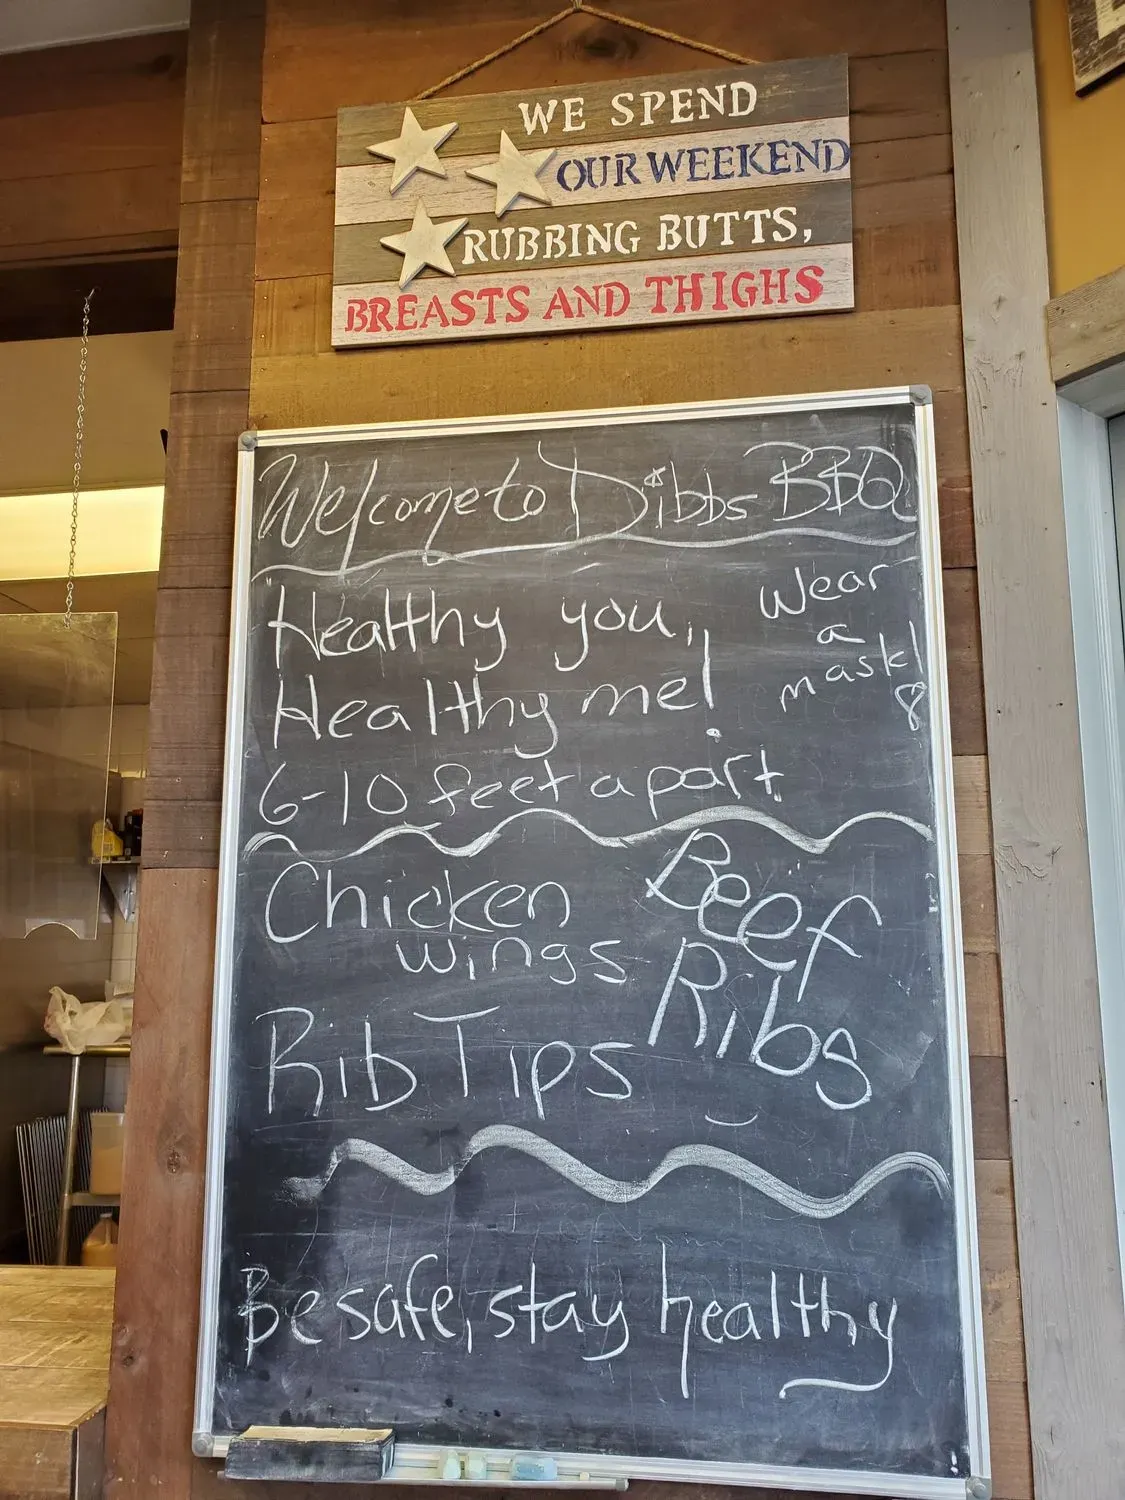 WE SPEND
OUR WEEKEND
RUBBING BUTTS,
BREASTS AND THIGHS
Welcome to Dibbs BBQ
Healthy you,
Healthy me!
Wear
a
mask!
8
6-10 feet apart
Chicken
wings
Beef
Ribs
Rib Tips
Be safe, stay healthy